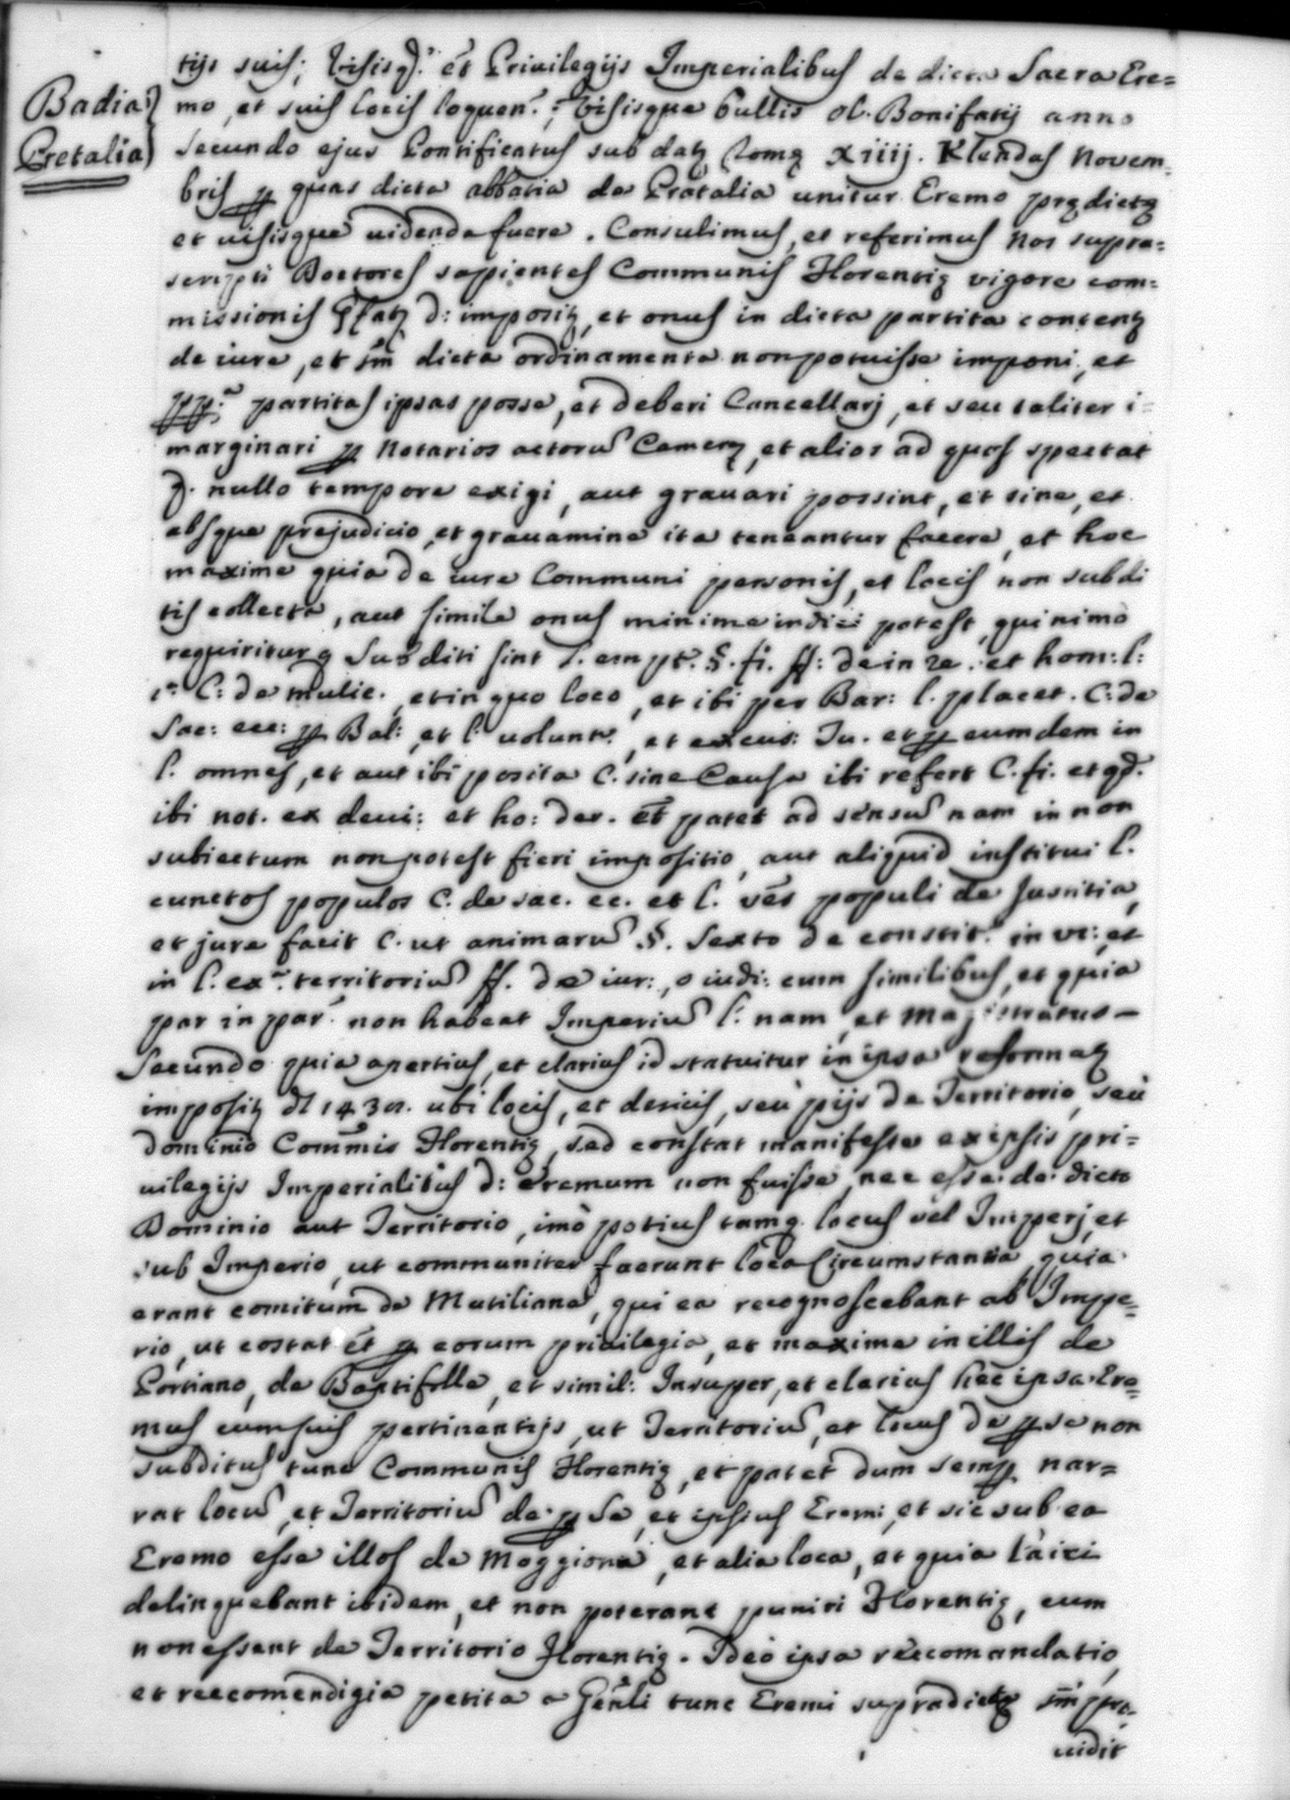 Badia
Pretalia
tijs suis; Visisq. et Priuilegijs Imperialibus de dicta Sacra Ere=
mo, et suis locis loquen.; Visisque bullis ol. Bonifatij anno
secundo ejus Pontificatus sub datę Romę xiiij. Klendas Novem=
bris p quas dicta abbatia de Pratalia unitur Eremo prędictę
et uisisque uidenda fuere. Consulimus, et referimus Nos supra=
scripti Doctores sapientes Communis Florentię vigore com=
missionis d: imposię, et onus in dicta partita contentę
de iure, et sm dicta ordinamenta non potuisse imponi, et
partitas ipsas posse, et deberi Cancellarj, et seu taliter i=
marginari p Notarios actoru Camerę, et alios ad quos spectat
q. nullo tempore exigi, aut grauari possint, et sine, et
absque prejudicio, et grauamine ita teneantur facere, et hoc
maxime quia de iure Communi personis, et locis non subdi
tis collecta, aut simile onus minime indici potest, quinimo
requiritur q Subditi sint l. empt. §. fi. ff: de in re. et hom: l:
1a C: de mulie., et in quo loco, et ibi per Bar: l. placet. C: de
Sac: ecc: p Bal:, et l. uolunt., et excus: Tu. et p eumdem in
l. omnes, et aut ibi posita C. sine Causa ibi refert C. fi. et qd.
ibi not. ex deui: et ho: der. et patet ad sensu nam in non
subiectum non potest fieri impositio, aut aliquid institui l.
cunctos populos C. de sac. ec. et l. ves populi de Justitia,
et jure facit C. ut animaru §. Sexto de constit. in vi:, et
in l. ex. territoriu ff. de iur:, o iudi: cum similibus, et quia
par in par. non habeat Imperiu l. nam, et Magistratus—
Secundo quia apertius, et clarius id statuitur in ipsa reformaę
imposię dl 143 . ubi locis, et clericis, seù pijs de Territorio, seù
dominio Commis Florentię, sed constat manifeste ex ipsis pri=
uilegijs Imperialibus d: eremum non fuisse, nec esse de dicto
Dominio aut Territorio, imò potius tamq. locus vel Imperj, et
sub Imperio, ut communiter fuerunt loca Circumstantia, quia
erant comitum de Mutiliana, qui ea recognoscebant ab Impe=
rio, ut costat et p eorum priuilegia, et maxime in illis de
Portiano, de Baptifolle, et simil: Insuper, et clarius hęc ipsa Ere=
mus cum suis pertinentijs, ut Territoriu, et locus de p se non
subditus tunc Communis Florentię, et patet dum semp nar=
rat locu, et Territoriu de p se, et ipsius Eremi, et sic sub ea
Eremo esse illos de Moggiona, et alia loca, et quia laici
delinquebant ibidem, et non poterant puniri Florentię, cum
non essent de Territorio Florentię. Ideò ipsa reccomandatio,
et reccomendigia petita a Genli tunc Eremi supradictę sm pro=
uidit